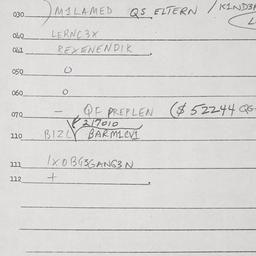 030 M1LAMED QS ELTERN / K1ND3R
040 LERNC3X
041 REXENENDIK
050 0
060 0
070 — QF PREPLEN ($ 52244 QS
217010
110 B1ZL BARM1CV1
111 1X0BG3GANG3N
112 +